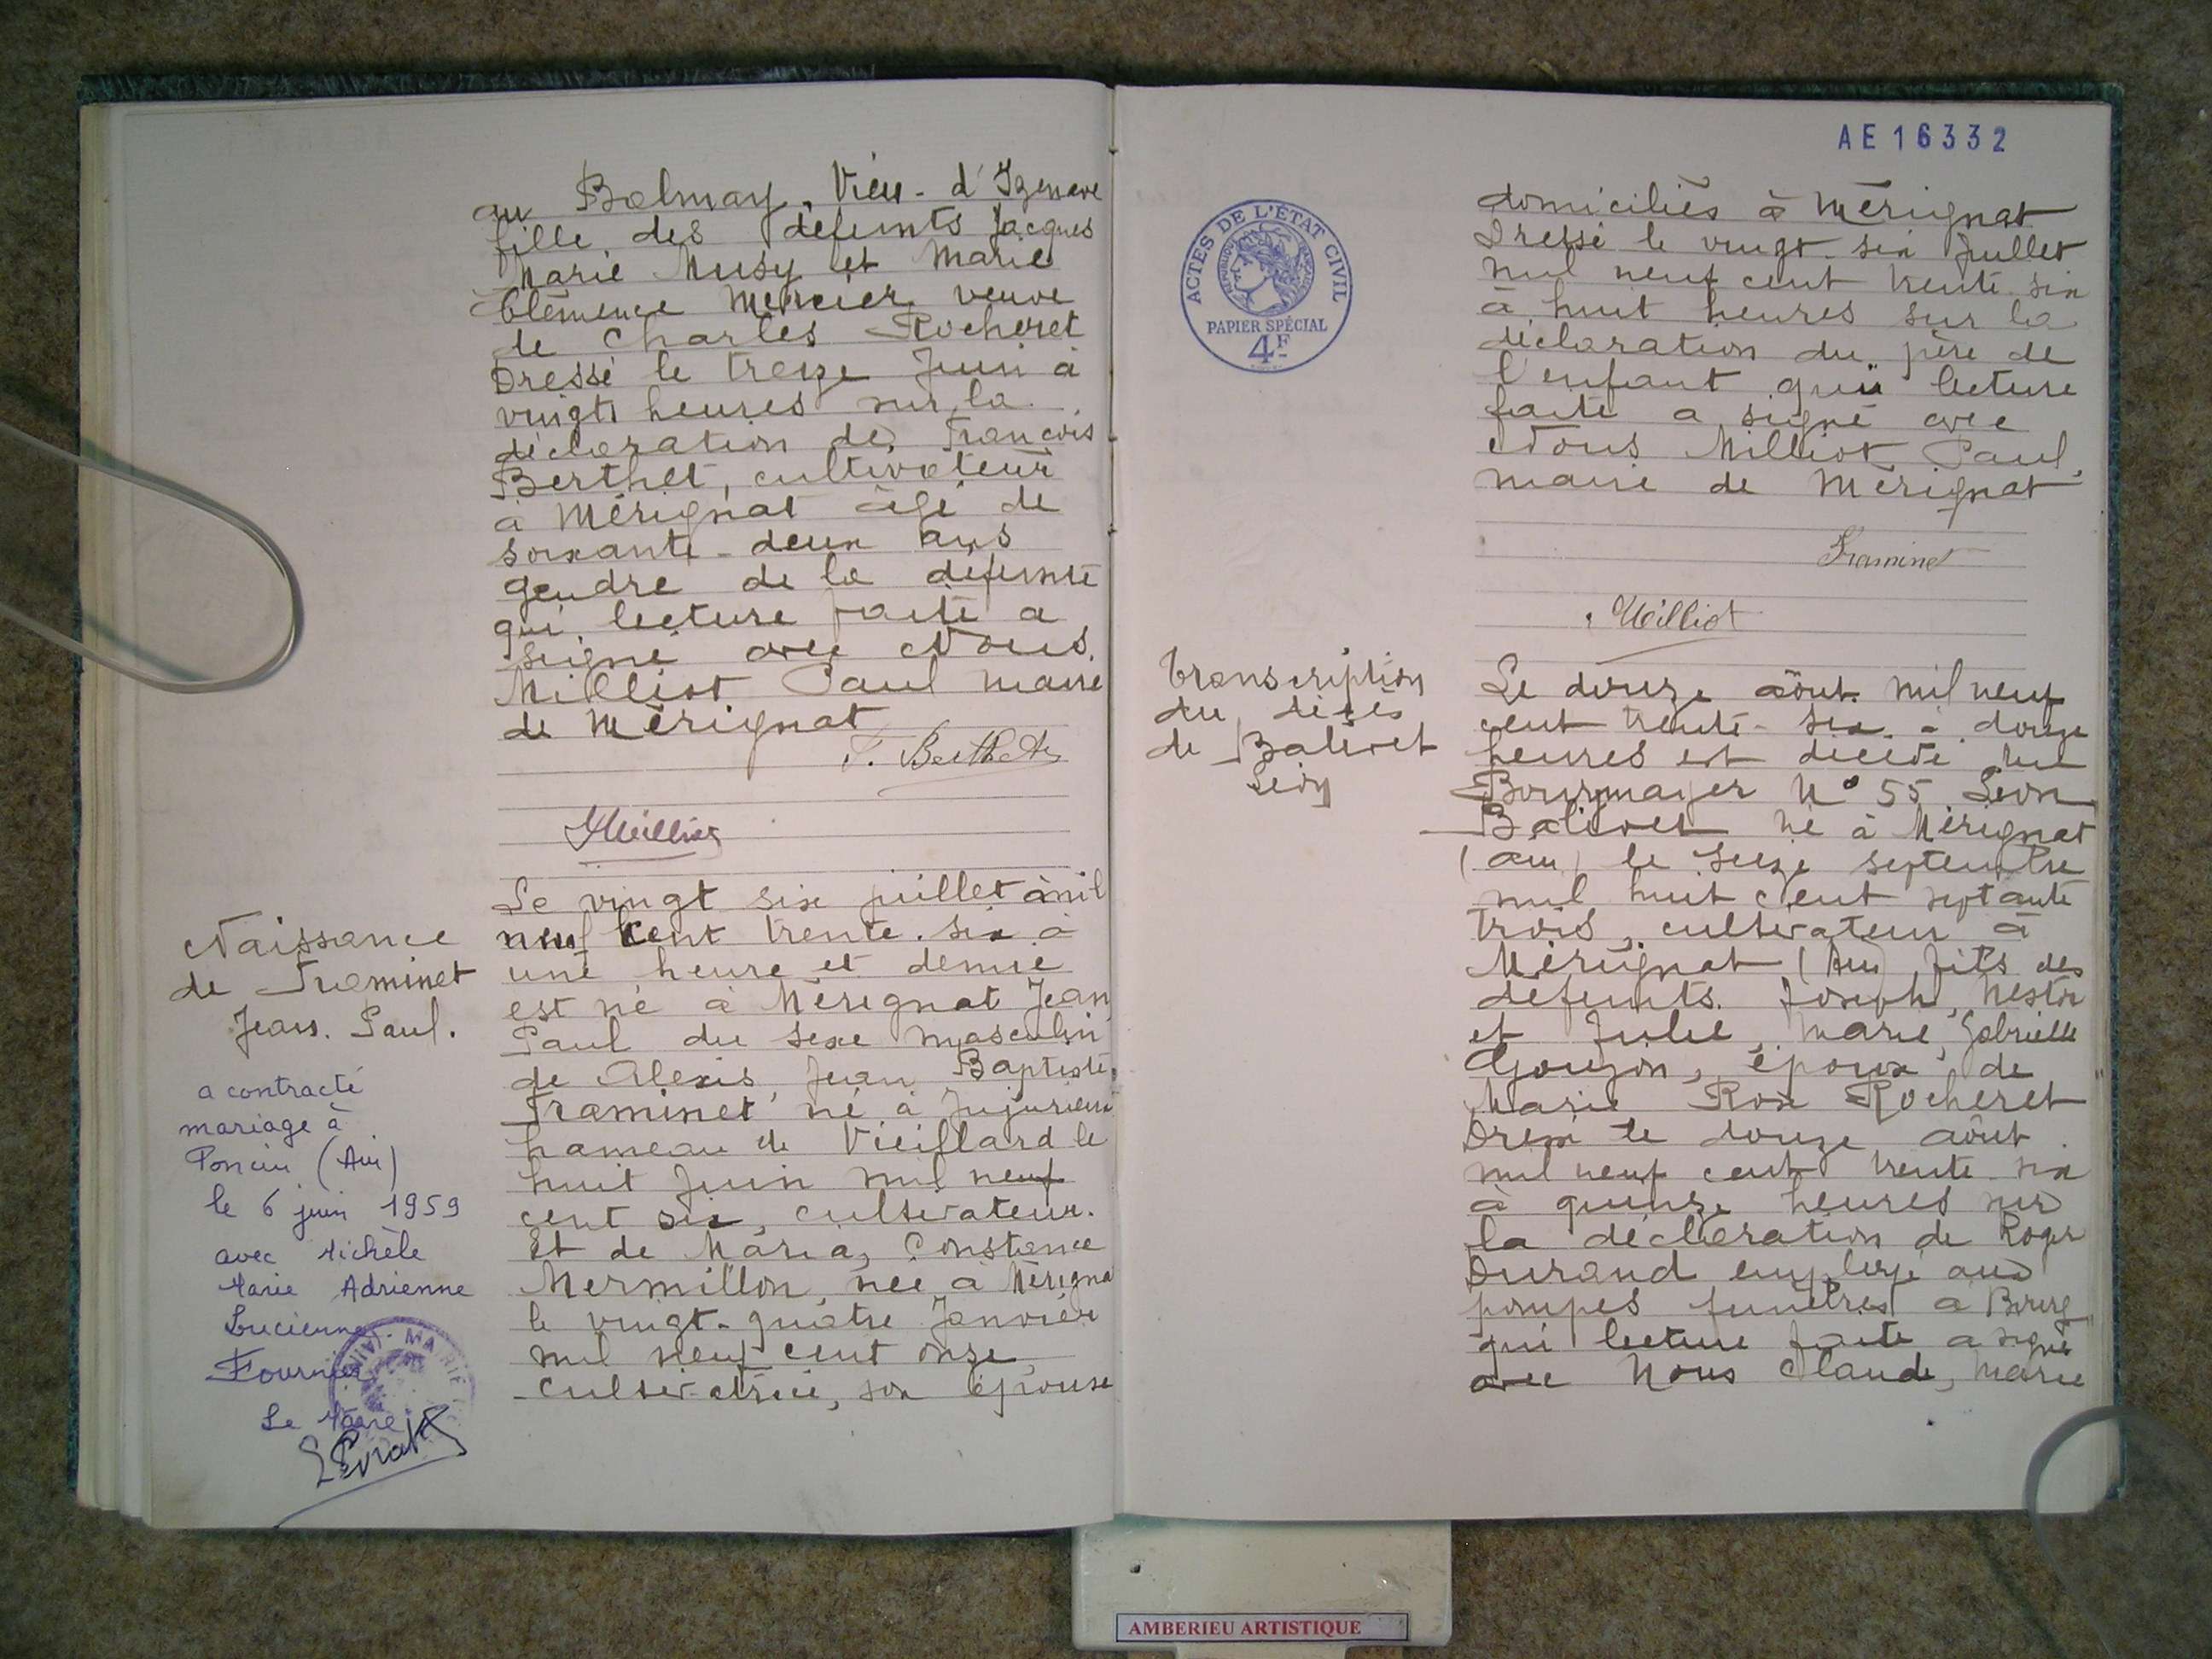 au Balmay, Vieu-d'Izenave
fille des défunts Jacques
Marie Musy et Marie
Clémence Mercier veuve
de Charles Rocheret
Dressé le treize Juin à
vingt heures sur la
déclaration de François
Berthet, cultivateur
à Mérignat âgé de
soixante-deux ans
gendre de la défunte
qui, lecture faite a
signé avec Nous
Milliot Paul maire
de Mérignat
F. Berthet
Milliot
Naissance
de Traminet
Jean. Paul.
a contracté
mariage à
Poncin (Ain)
le 6 juin 1959
avec Michèle
Marie Adrienne
Lucienne
Fournier
Le Maire
MAIRIE
Le vingt six juillet mil
neuf cent trente-six à
une heure et demie
est né à Mérignat Jean
Paul du sexe masculin
de Alexis, Jean Baptiste,
Traminet né à Jujurieux
hameau de Vieillard le
huit Juin mil neuf
cent six, cultivateur.
Et de Maria, Constance
Mermillon, née à Mérigna
le vingt-quatre Janvier
mil neuf cent onze,
cultivatrice, son épouse
AE16332
ACTES DE L'ÉTAT CIVIL
PAPIER SPÉCIAL
4F
domiciliés à Mérignat
Dressé le vingt-six Juillet
mil neuf cent trente six
à huit heures sur la
déclaration du père de
l'enfant qui lecture
faite a signé avec
Nous Milliot Paul,
maire de Mérignat
Traminet
Milliot
Transcription
du décès
de Balivet
Léon
Le douze août mil neuf
cent trente-six à douze
heures est décédé rue
Bourgmayer N° 55 Léon
Balivet né à Mérignat
(Ain) le seize septembre
mil huit cent septante
trois, cultivateur à
Mérignat (Ain) fils des
défunts Joseph, Nestor
et Julie, Marie, Gabrielle
Goujon, époux de
Marie Rose Rocheret
Dressé le douze août
mil neuf cent trente six
à quinze heures sur
la déclaration de Roger
Durand employé aux
pompes funèbres à Bourg
qui lecture faite a signé
avec Nous Claude, Marie
AMBERIEU ARTISTIQUE